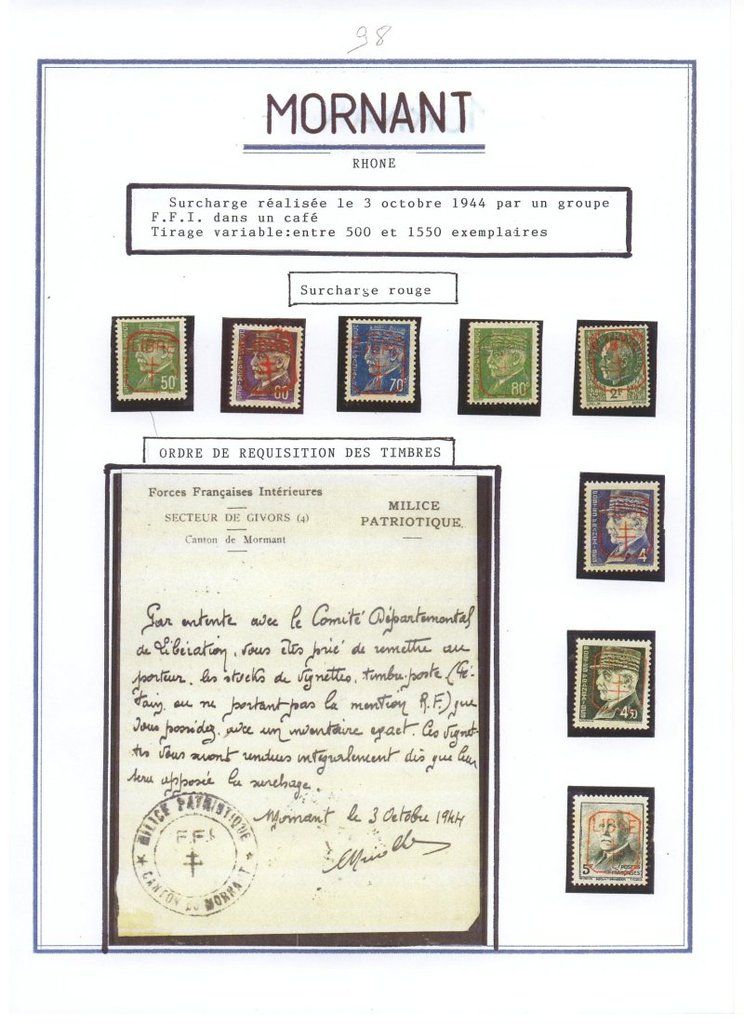 98
MORNANT
RHONE
Surcharge réalisée le 3 octobre 1944 par un groupe
F.F.I. dans un café
Tirage variable:entre 500 et 1550 exemplaires
Surcharge rouge
LIBRE
50ᶜ
60ᶜ
70ᶜ
80ᶜ
2F
ORDRE DE REQUISITION DES TIMBRES
Forces Françaises Intérieures
SECTEUR DE GIVORS (4)
Canton de Mormant
MILICE
PATRIOTIQUE
Par entente avec le Comité Départemental
de Libération, vous êtes prié de remettre au
porteur, les stocks de vignettes, timbre-poste (Pé-
tain, ou ne portant pas la mention R.F.) que
vous possidez, avec un inventaire exact. Ces vignet-
tes vous seront rendues intégralement dès que leur
sera apposée la surchage.
Mornant le 3 Octobre 1944
MILICE PATRIOTIQUE
F.F.I
CANTON DU MORNANT
4
4,50
LIBRE
5F
POSTES
FRANÇAISES